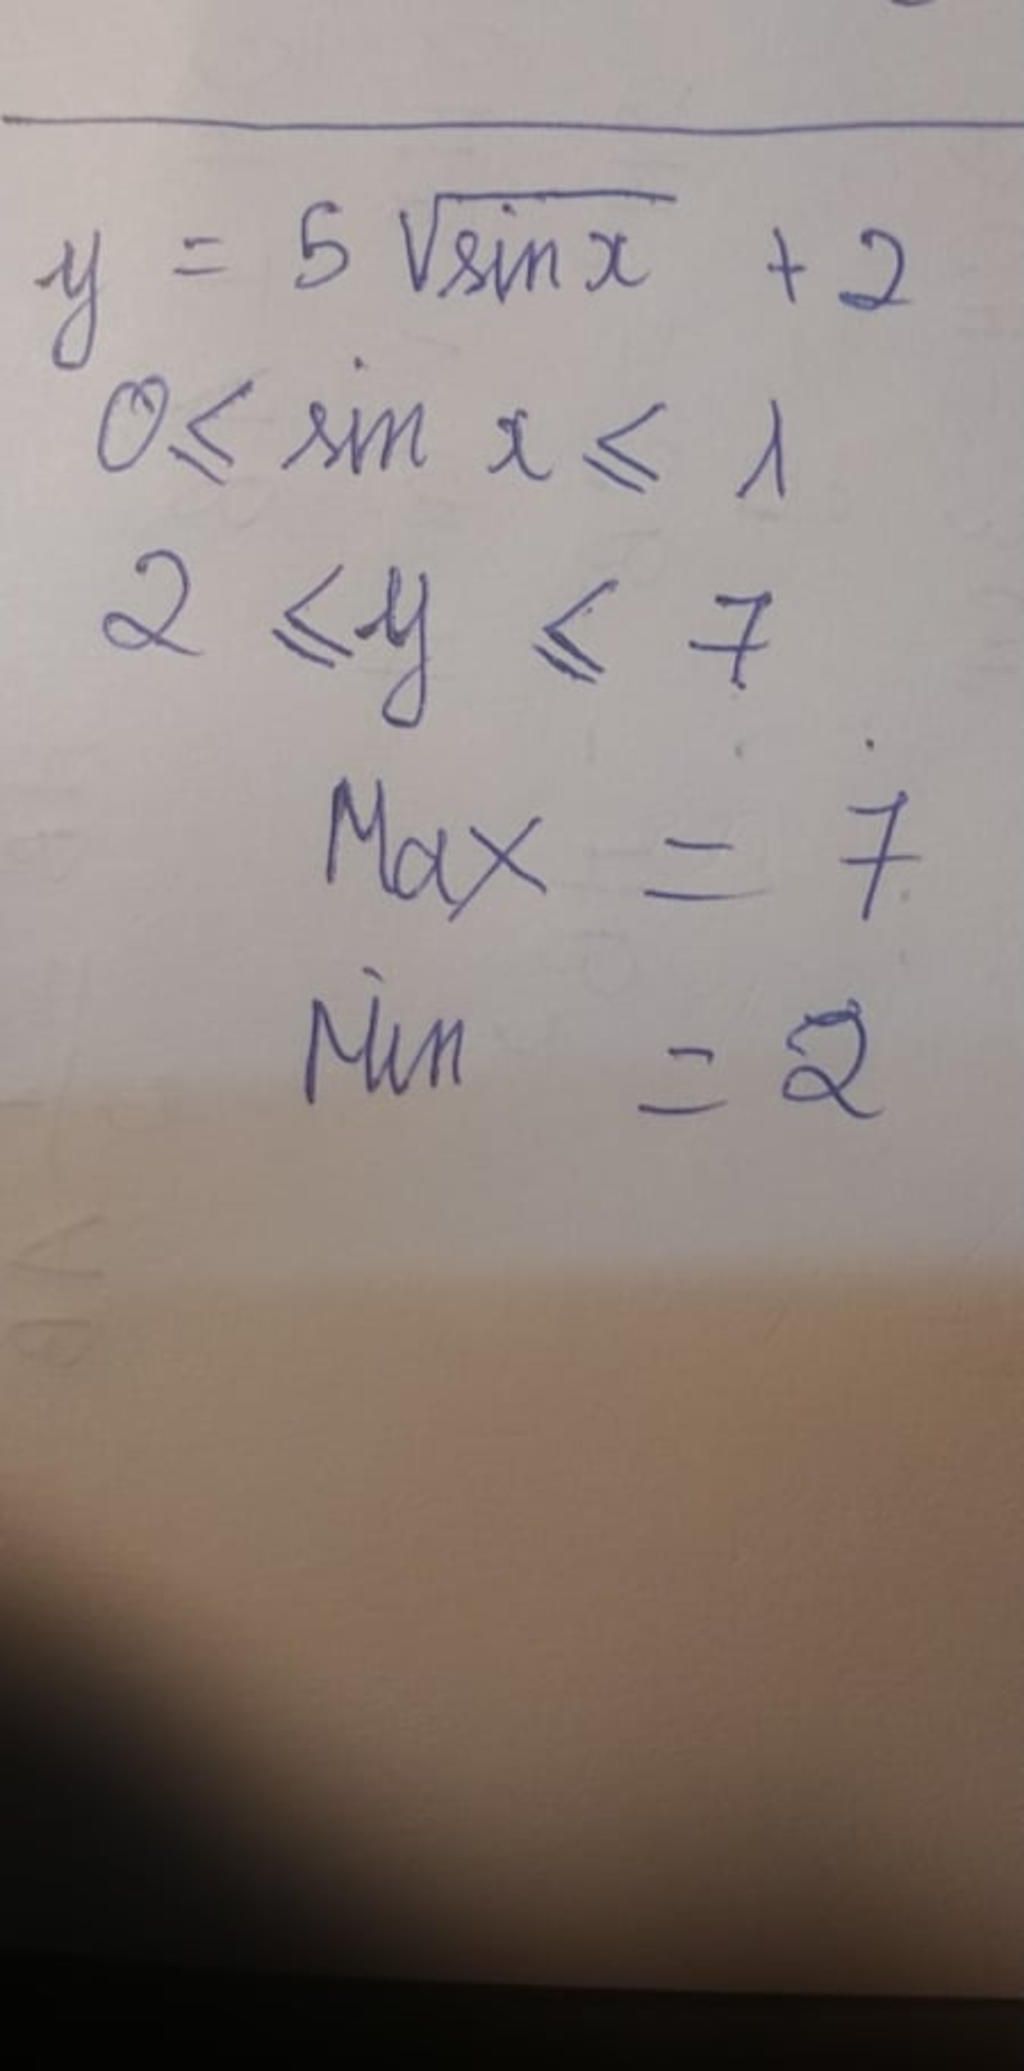 y = 5 √sin x + 2
0 ≤ sin x ≤ 1
2 ≤ y ≤ 7
Max = 7
Min = 2